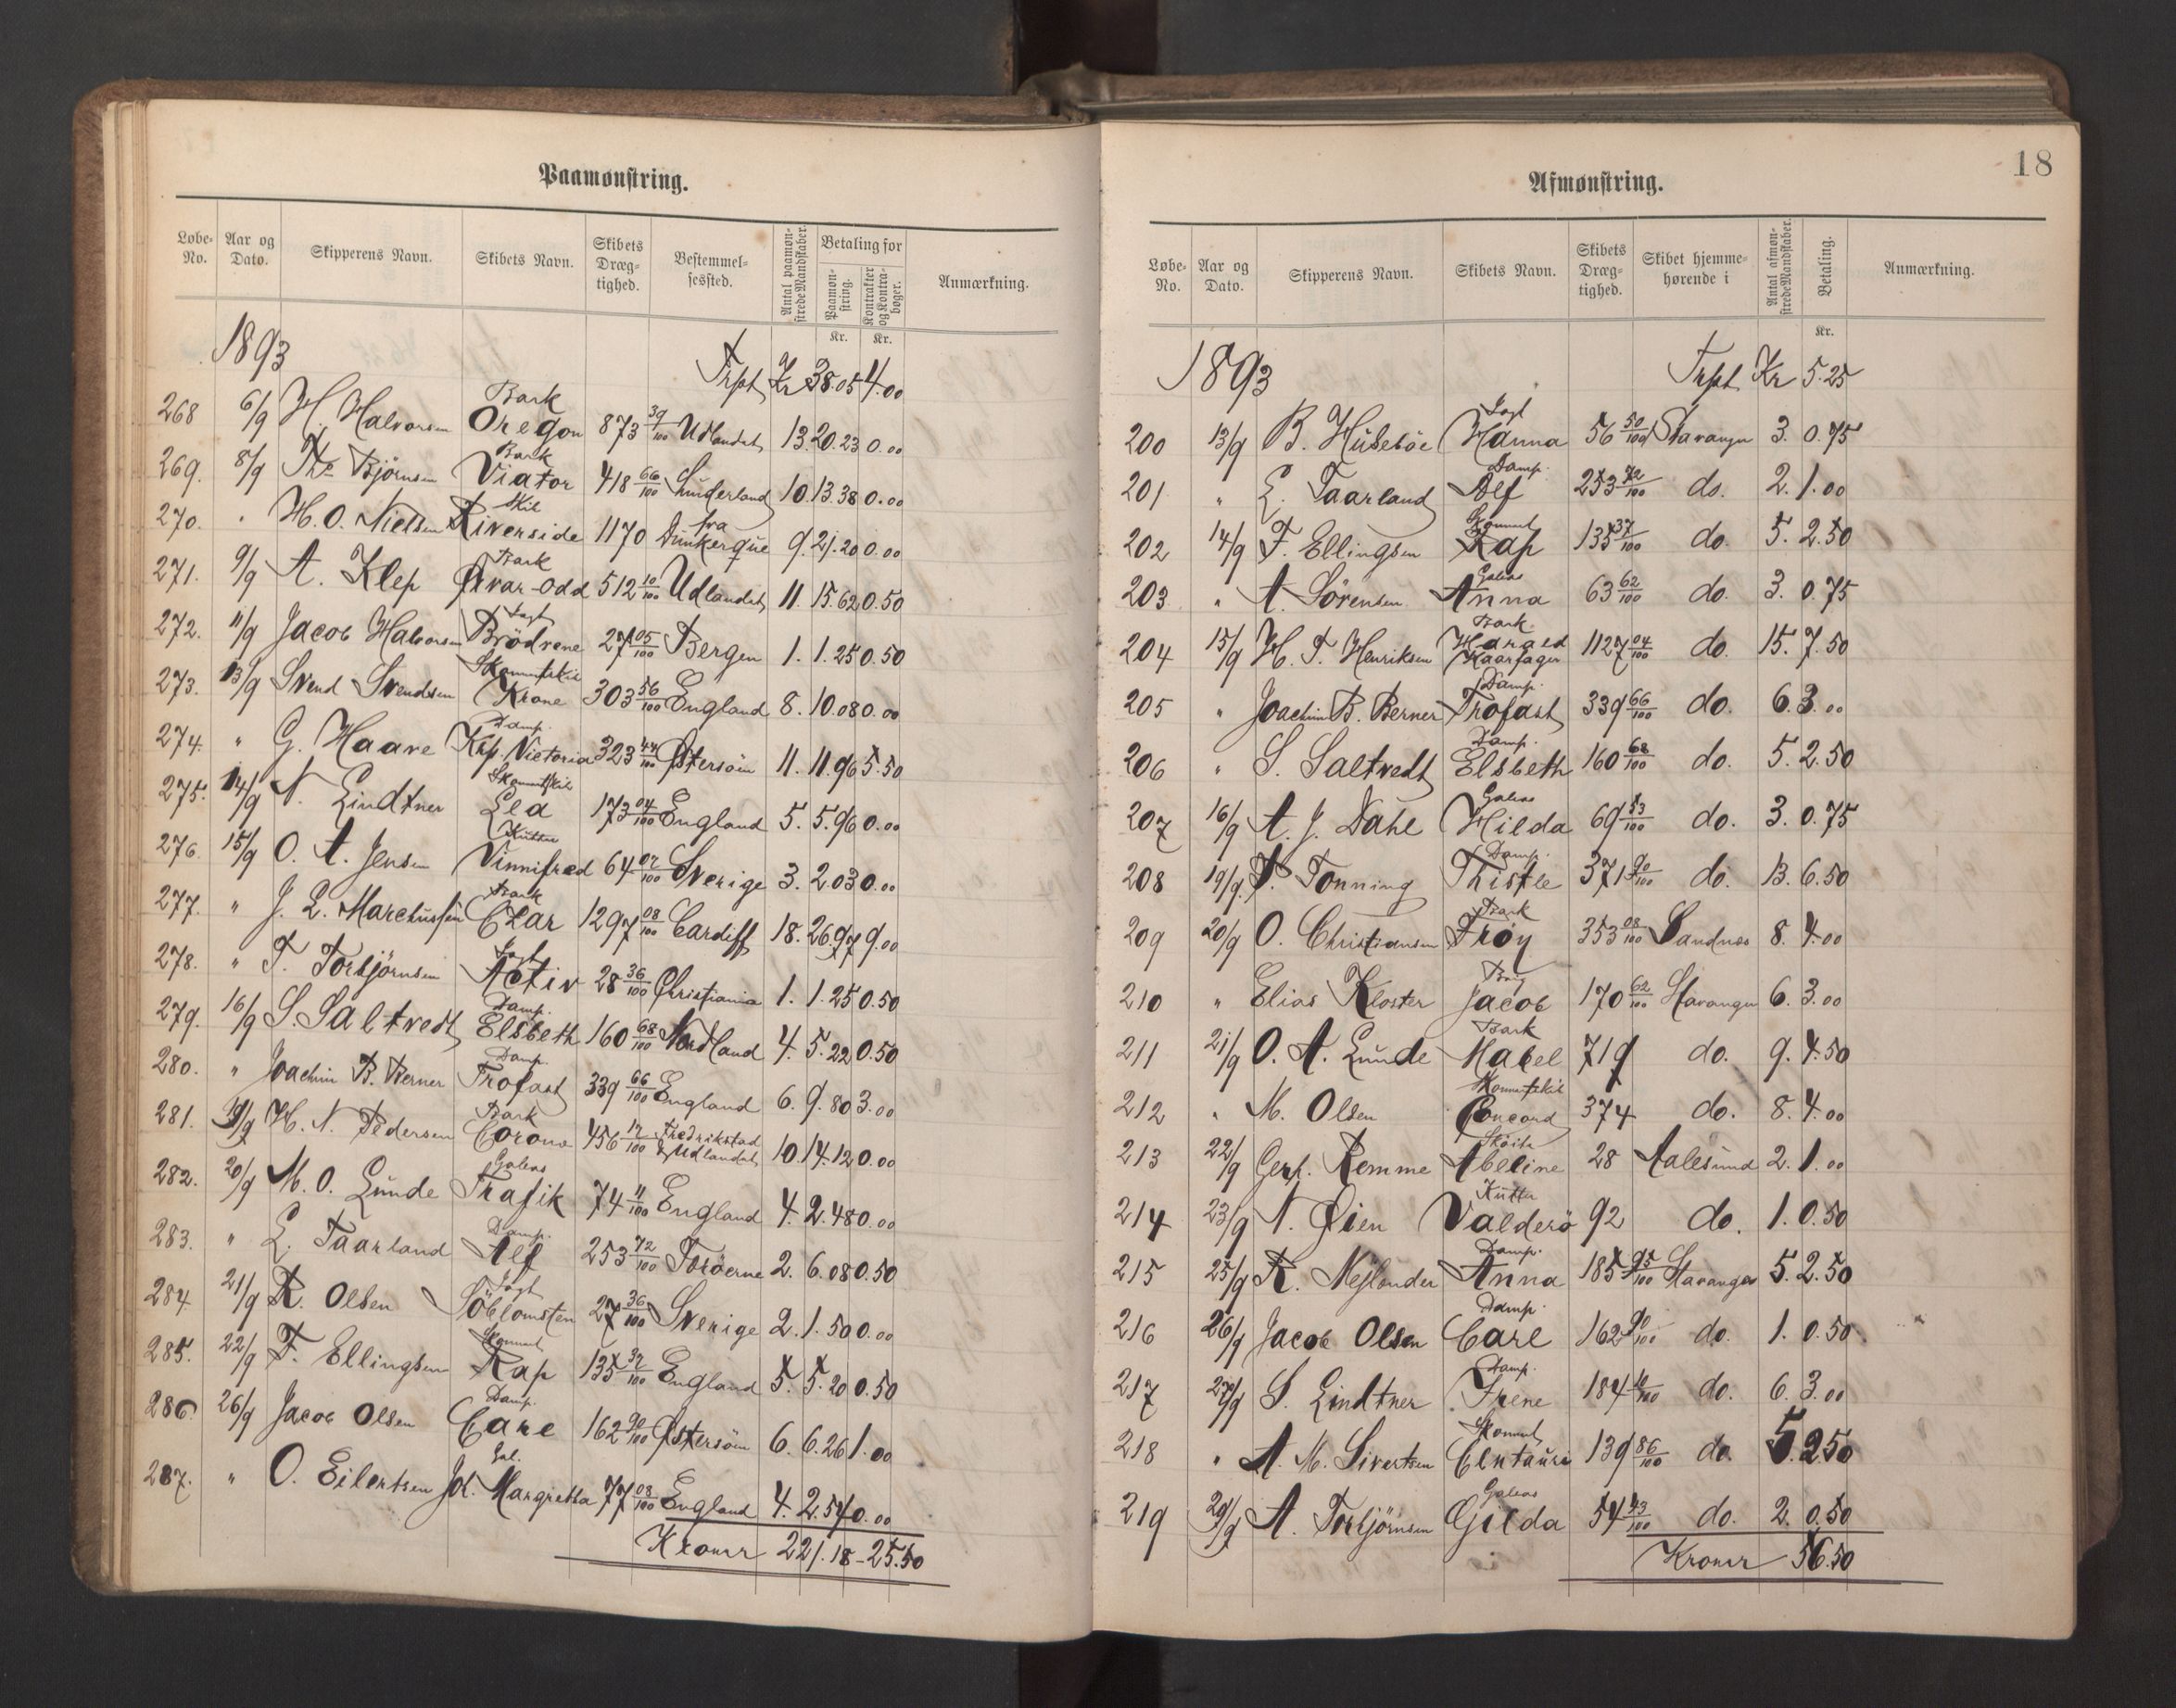 Paamønstring.
Løbe-No. Aar og Dato. Skipperens Navn. Skibets Navn. Skibets Dræg-tighed. Bestemmel-sessted. Antal paamøn-strede Mandskaber. Betaling for Paamøn-string. Kontrakter og Kontra-bøger. Anmærkning.
Kr. Kr.
1893 Trpt Kr 38.05 4.00
268 6/9 H. Halvorsen Bark Oregon 873 39/100 Udlandet 13. 20.23 0.00
269. 8/9 Ths Bjørnsen Bark Viator 418 66/100 Sunderland 10. 13.38 0.00
270. " H. O. Nielsen Skib Riverside 1170 fra Dünkerque 9. 21.20 0.00
271. 9/9 A. Klep Bark Ørvar-Odd 512 10/100 Udlandet 11. 15.62 0.50
272. 11/9 Jacob Halvorsen Jagt Brödrene 27 05/100 Bergen 1. 1.25 0.50
273. 13/9 Svend Svendsen Skonnertskib Krone 303 56/100 England 8. 10.08 0.00
274. " G. Haave Damp. Krp. Victoria 323 44/100 Østersöen 11. 11.96 5.50
275. 14/9 N. Lindtner Skonnertskib Lea 173 04/100 England 5. 5.96 0.00
276 15/9 O. A. Jensen Kutter Vinnifred 64 07/100 Sverige 3. 2.03 0.00
277. " J. L. Marcussen Bark Czar 1297 08/100 Cardiff 18. 26.97 9.00
278. " T. Torbjörnsen Jagt Activ 28 36/100 Christiania 1. 1.25 0.50
279. 16/9 S. Saltvedt Damp. Elsbeth 160 68/100 Nordland 4. 5.22 0.50
280. " Joachim B. Berner Damp. Trofast 339 66/100 England 6. 9.80 3.00
281. 19/9 H. N. Pedersen Bark Corona 456 12/100 Fredrikstad & Udlandet 10. 14.12 0.00
282. 20/9 M. O. Lunde Galeas Trafik 74 11/100 England 4. 2.48 0.00
283. " L. Taarland Damp. Alf 253 72/100 Færöerne 2. 6.08 0.50
284 21/9 R. Olsen Jagt Söblomsten 27 36/100 Sverige 2. 1.50 0.00
285. 22/9 F. Ellingsen Skonnert Rap 135 37/100 England 5. 5.20 0.50
286. 26/9 Jacob Olsen Damp. Carl 162 90/100 Østersöen 6. 6.26 1.00
287. " O. Eilertsen Gal. Joh. Margretha 77 08/100 England 4. 2.54 0.00
Kroner 221.18 - 25.50
18
Afmønstring.
Løbe-No. Aar og Dato. Skipperens Navn. Skibets Navn. Skibets Dræg-tighed. Skibet hjemme-hørende i Antal afmøn-strede Mandskaber. Betaling. Anmærkning.
Kr.
1893 Trpt Kr 5.25
200 13/9 B. Hüseböe Jagt Hanna 56 50/100 Stavanger 3. 0.75
201 " L. Taarland Damp. Alf 253 72/100 do. 2. 1.00
202 14/9 F. Ellingsen Skonnert Rap 135 37/100 do. 5. 2.50
203 " A. Sörensen Galeas Anna 63 62/100 do. 3. 0.75
204 15/9 H. T. Henriksen Bark Harald Haarfager 1127 04/100 do. 15. 7.50
205 " Joachim B. Berner Damp. Trofast 339 66/100 do. 6. 3.00
206 " S. Saltvedt Damp. Elsbeth 160 68/100 do. 5. 2.50
207 16/9 A. J. Dahl Galeas Hilda 69 53/100 do. 3. 0.75
208 19/9. P. Tonning Damp. Thistle 371 90/100 do. 13. 6.50
209 20/9 O. Christiansen Bark Fröy 353 08/100 Sandnes 8. 4.00
210 " Elias Kloster Brig Jacob 170 62/100 Stavanger 6. 3.00
211 21/9 O. A. Lunde Bark Mabel 719 do. 9. 4.50
212 " M. Olsen Skonnertskib Concord 374 do. 8. 4.00
213 22/9 Gerh. Remme Sköite Abeline 28 Aalesund 2. 1.00
214 23/9 N. Øien Kutter Valderö 92 do. 1. 0.50
215 25/9 R. Nejlænder Damp. Anna 185 95/100 Stavanger 5. 2.50
216 26/9 Jacob Olsen Damp. Carl 162 90/100 do. 1. 0.50
217 27/9 S. Lindtner Damp. Irene 184 10/100 do. 6. 3.00
218 " A. M. Sivertsen Skonnert Centauri 139 86/100 do. 5. 2.50
219 29/9 A. Torbjörnsen Galeas Gilda 54 43/100 do. 2. 0.50
Kroner 56.50